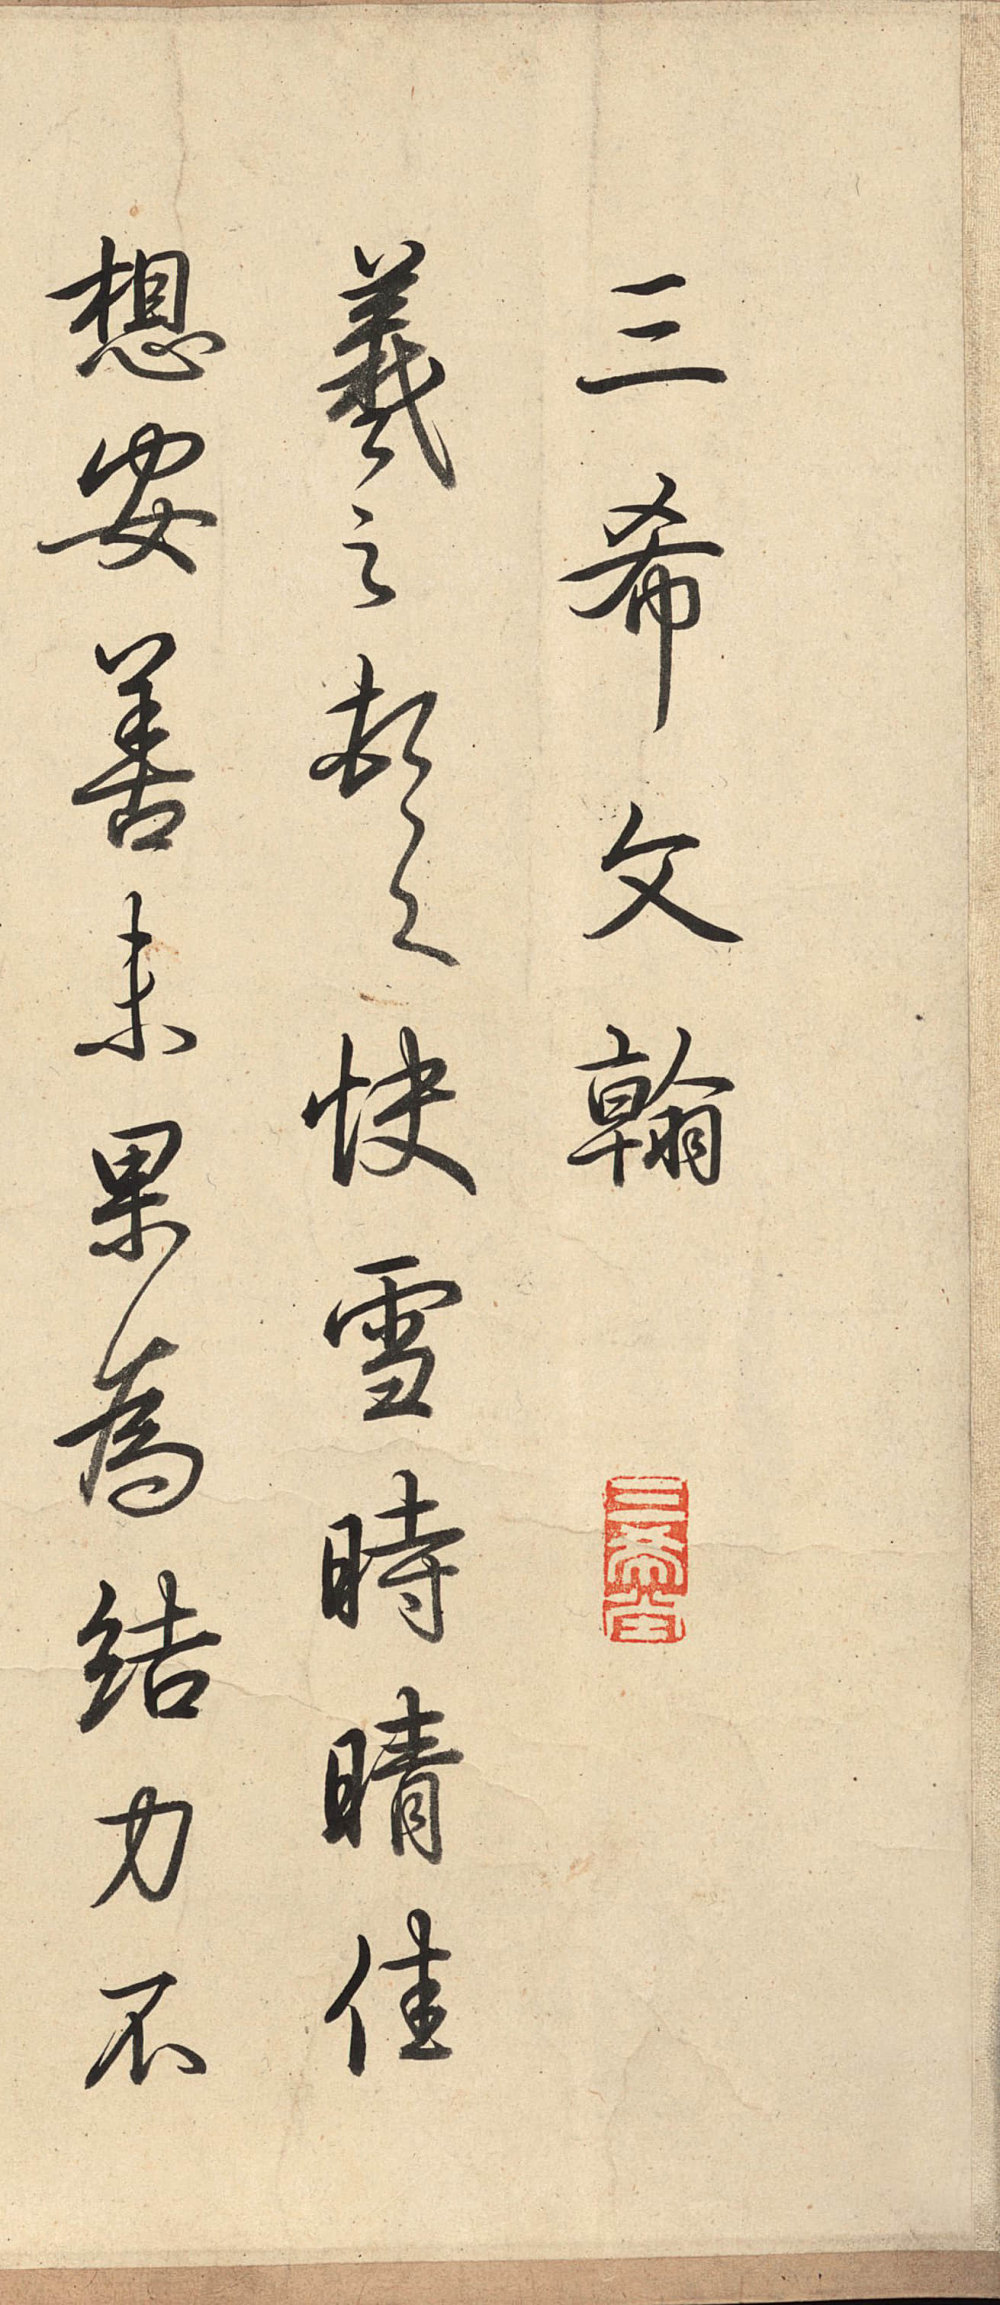 三希文翰
三希堂
羲之頓首快雪時晴佳
想安善未果為結力不